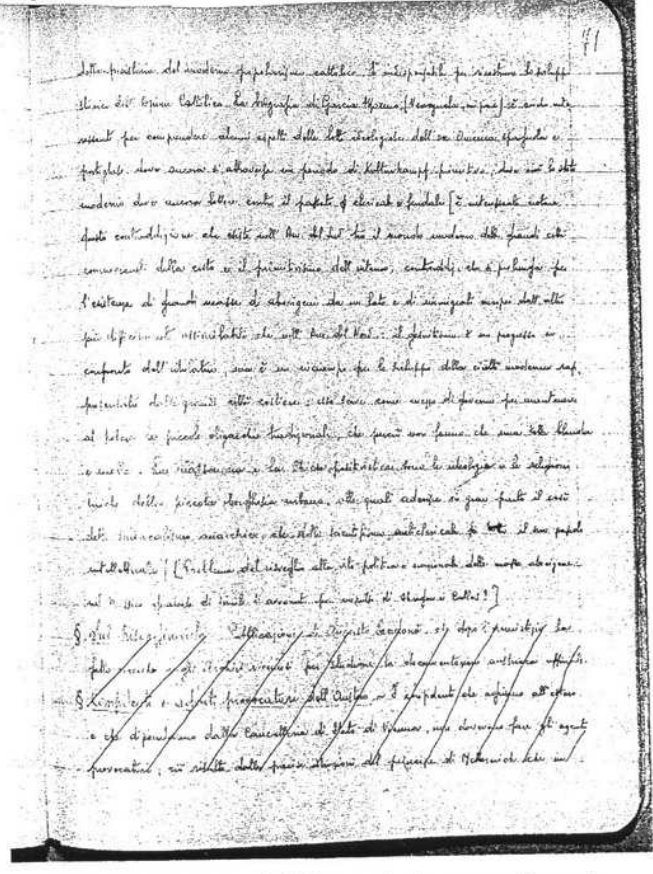 71
della posizione del moderno popolarismo cattolico. È indispensabile per ricostruire lo svilupp
storico dell'Opinione Cattolica. La biografia di Garcia Moreno [Venezuela, mi pare] è anche inte
ressante per comprendere alcuni aspetti delle lotte ideologiche dell'ex America spagnola e
portoghese, dove ancora si attraversa un periodo di Kulturkampf primitivo, dove cioè lo stato
moderno deve ancora lottare contro il passato clericale e feudale [È interessante notare
questa contraddizione che esiste nell'Am. del Sud tra il mondo moderno delle grandi città
commerciali della costa e il primitivismo dell'interno, contraddiz. che si prolunga per
l'esistenza di grandi masse di aborigeni da un lato e di immigrati europei dall'altro
più difficilmente assimilabili che nell'Am. del Nord: il gesuitismo è un progresso in
confronto dell'idolatria, ma è un inciampo per lo sviluppo della civiltà moderna rap
presentata dalle grandi città costiere: esso serve come mezzo di governo per mantenere
al potere le piccole oligarchie tradizionali, che perciò non fanno che una lotta blanda
e . La massoneria e la Chiesa positivista sono le ideologie e le religioni
laiche della piccola borghesia urbana, alle quali aderisce in gran parte il così
detto sindacalismo anarchico che dello scientismo anticlericale fa il suo pascolo
intellettuale] [Problema del risveglio alla vita politica e nazionale delle masse aborigene:
nel Messico qualcosa di simile è avvenuto per impulso di Obregon e Calles?]
§. Sul Risorgimento. Pubblicazioni di Augusto Sandonà che dopo l'armistizio ha
fatto ricerche negli Archivi viennesi per studiare la documentazione austriaca ufficiale.
§ Confidenti e agenti provocatori dell'Austria – I confidenti che agivano all'estero
e che dipendevano dalla Cancelleria di Stato di Vienna, non dovevano fare gli agenti
provocatori; ciò risulta dalle precise istruzioni del principe di Metternich che in